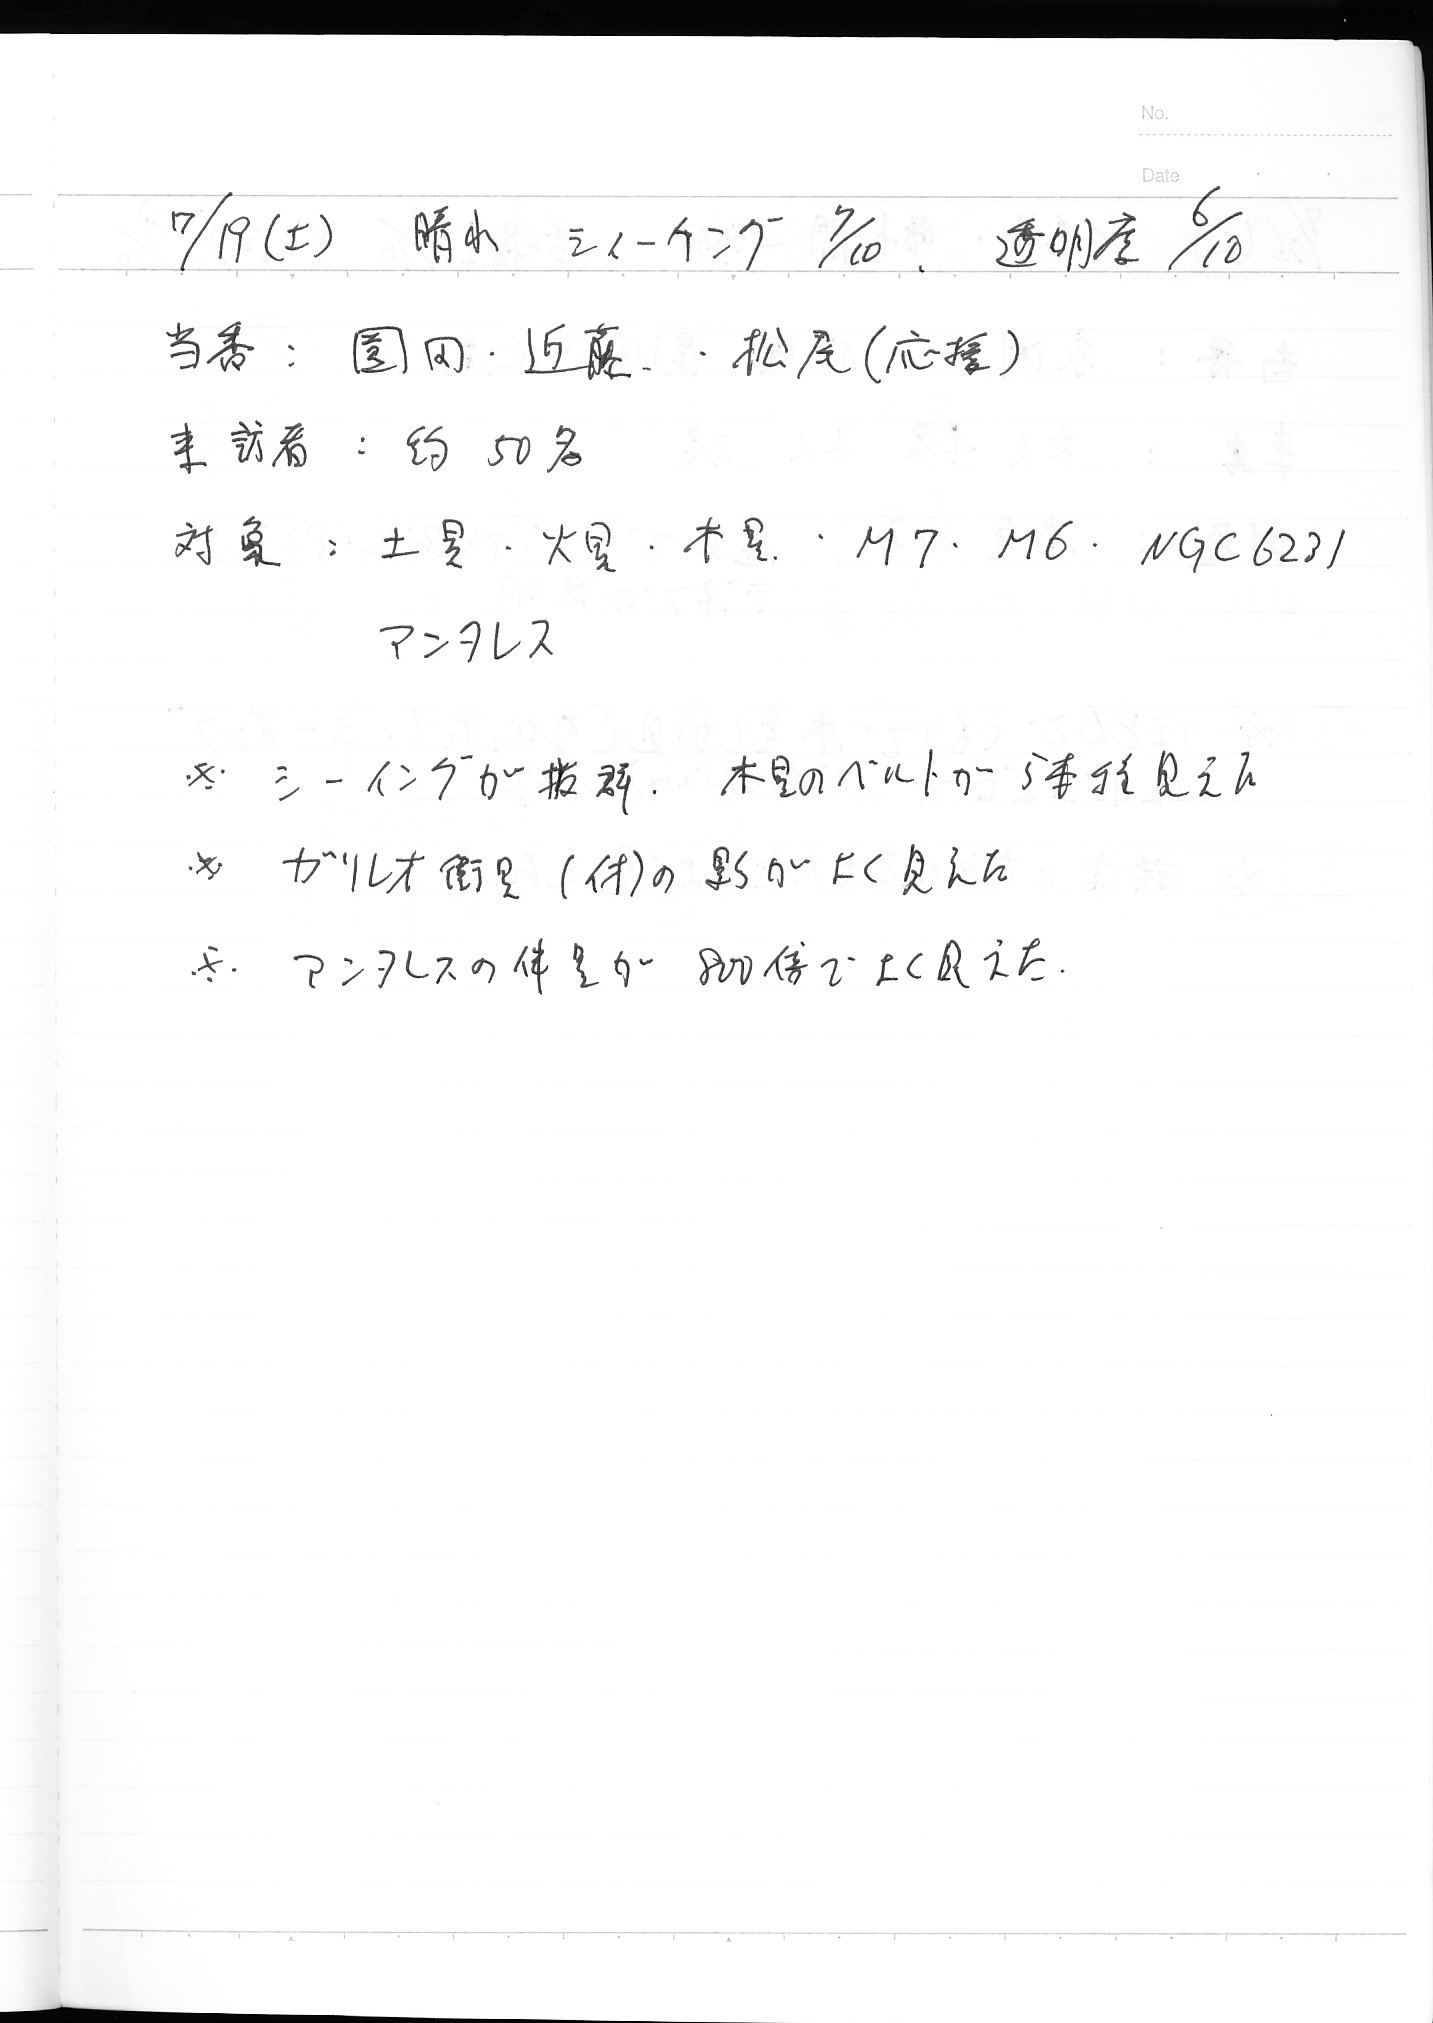 No.
Date
7/19(土) 晴れ シィーイング 7/10. 透明度 6/10
当番: 園田・近藤・松尾(応援)
来訪者: 約50名
対象: 土星・火星・木星・M7・M6・NGC6231
アンタレス
※ シーイングが抜群. 木星のベルトが5本程見えた
※ ガリレオ衛星(体)の影がよく見えた
※ アンタレスの伴星が800倍でよく見えた.